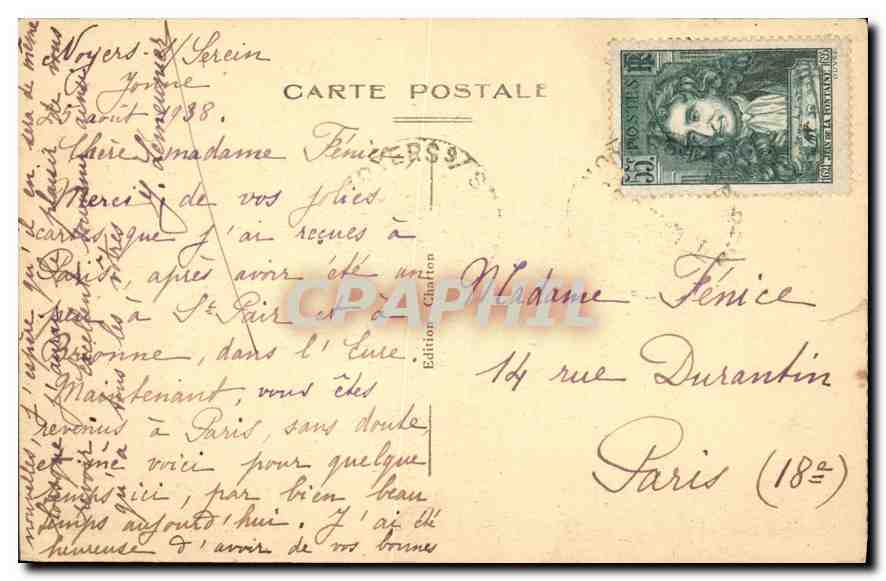 Noyers s/ Serein
Yonne
5 août 1938.
Chère madame Fénice
Merci de vos jolies
cartes que j'ai reçues à
Paris, après avoir été un
peu à St Pair et à
Brionne, dans l'Eure.
Maintenant, vous êtes
revenus à Paris, sans doute,
et me voici pour quelque
temps ici, par bien beau
temps aujourd'hui. J'ai été
heureuse d'avoir de vos bonnes
nouvelles, j'espère qu'il en sera de même
lorsque j'aurai le plaisir de vous
revoir. Excellent souvenir ainsi
qu'à tous les vôtres
Y. Lemeunier
CARTE POSTALE
Edition Charton
NOYERS S
POSTES RF
55c
JEAN DE LA FONTAINE
Madame Fénice
14 rue Durantin
Paris (18e)
CPAPHIL